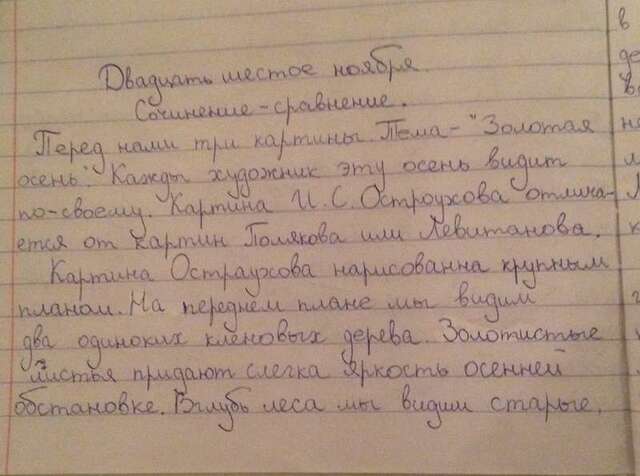 Двадцать шестое ноября.
Сочинение-сравнение.
Перед нами три картины. Тема - "Золотая
осень". Кажды художник эту осень видит
по-своему. Картина И.С.Остроухова отлича-
ется от картин Полякова или Левитанова.
Картина Остраухова нарисованна крупным
планом. На переднем плане мы видим
два одиноких кленовых дерева. Золотистые
листья придают слегка яркость осенней
обстановке. Вглубь леса мы видим старые,